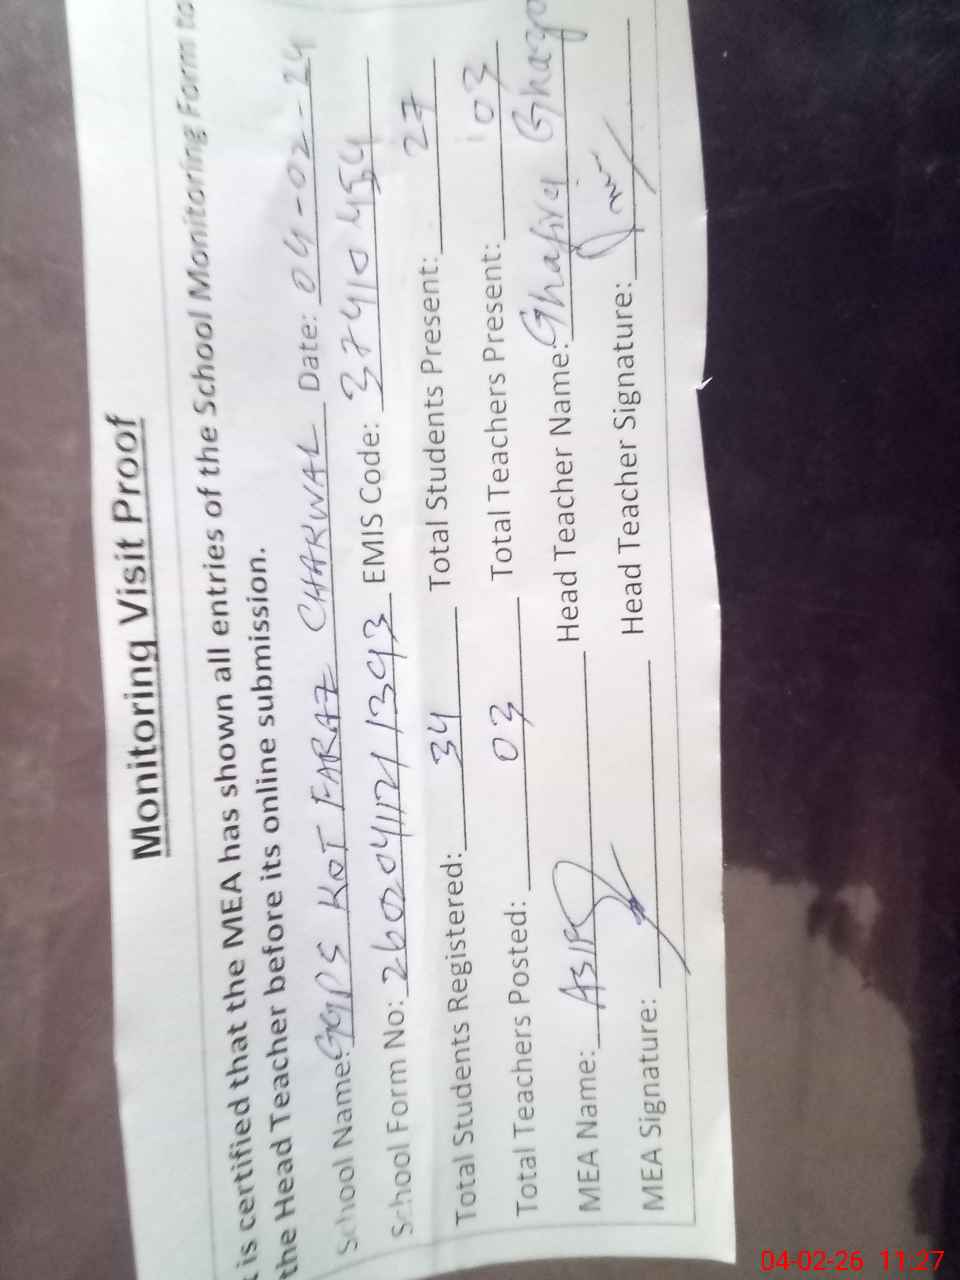 Monitoring Visit Proof
is certified that the MEA has shown all entries of the School Monitoring Form to
the Head Teacher before its online submission.
School Name: GGPS KOT FARAZ CHAKWAL Date: 04-02-24
School Form No: 26020411211393 EMIS Code: 37410454
Total Students Registered: 34 Total Students Present: 27
Total Teachers Posted: 03 Total Teachers Present: 03
MEA Name: ASIF Head Teacher Name:
MEA Signature: Head Teacher Signature:
04-02-26 11:27